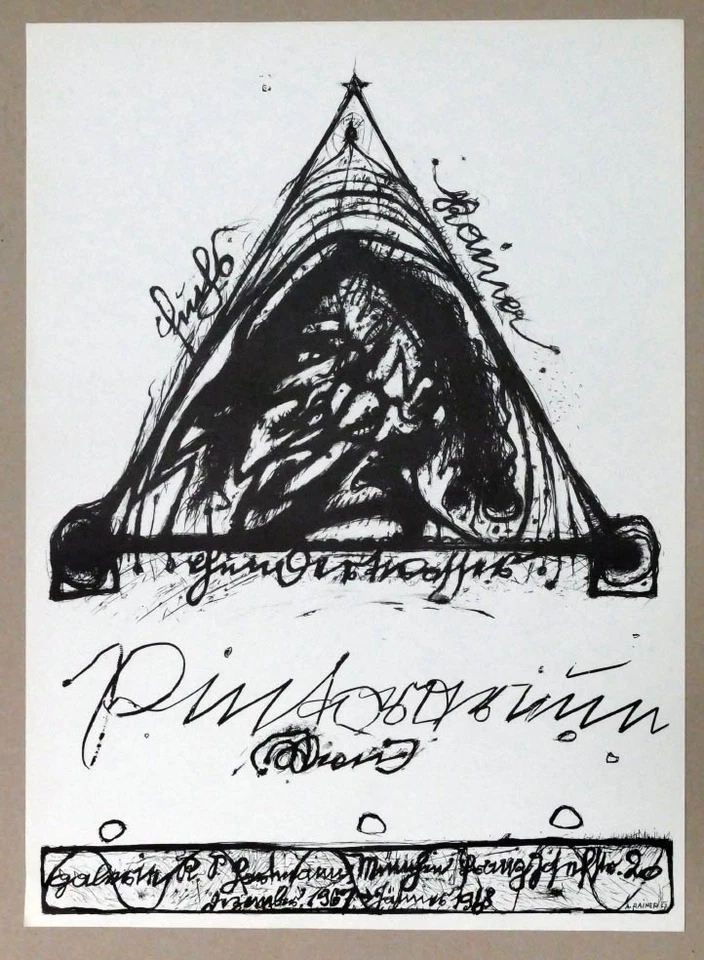 Fuchs
Rainer
Hundertwasser
Pintorarium
Galerie R. P. Hartmann München Franz Josef Str. 20
Dezember 1967 Jänner 1968
A. RAINER